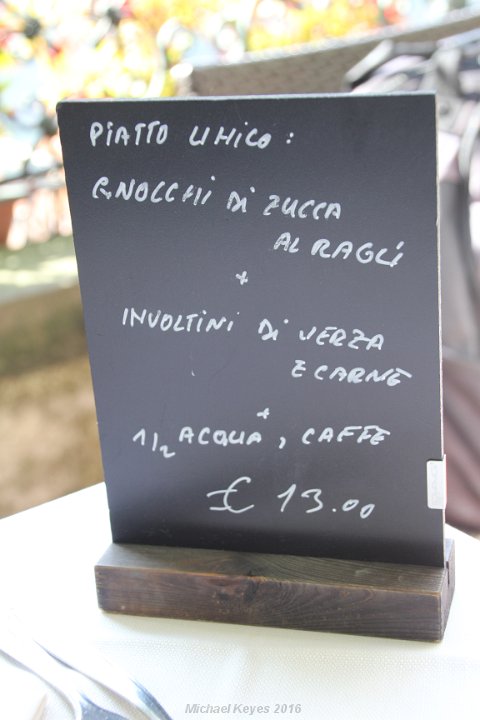 PIATTO UNICO :
GNOCCHI DI ZUCCA
AL RAGÙ
+
INVOLTINI DI VERZA
E CARNE
+
1/2 ACQUA, CAFFE
€ 13.00
Michael Keyes 2016